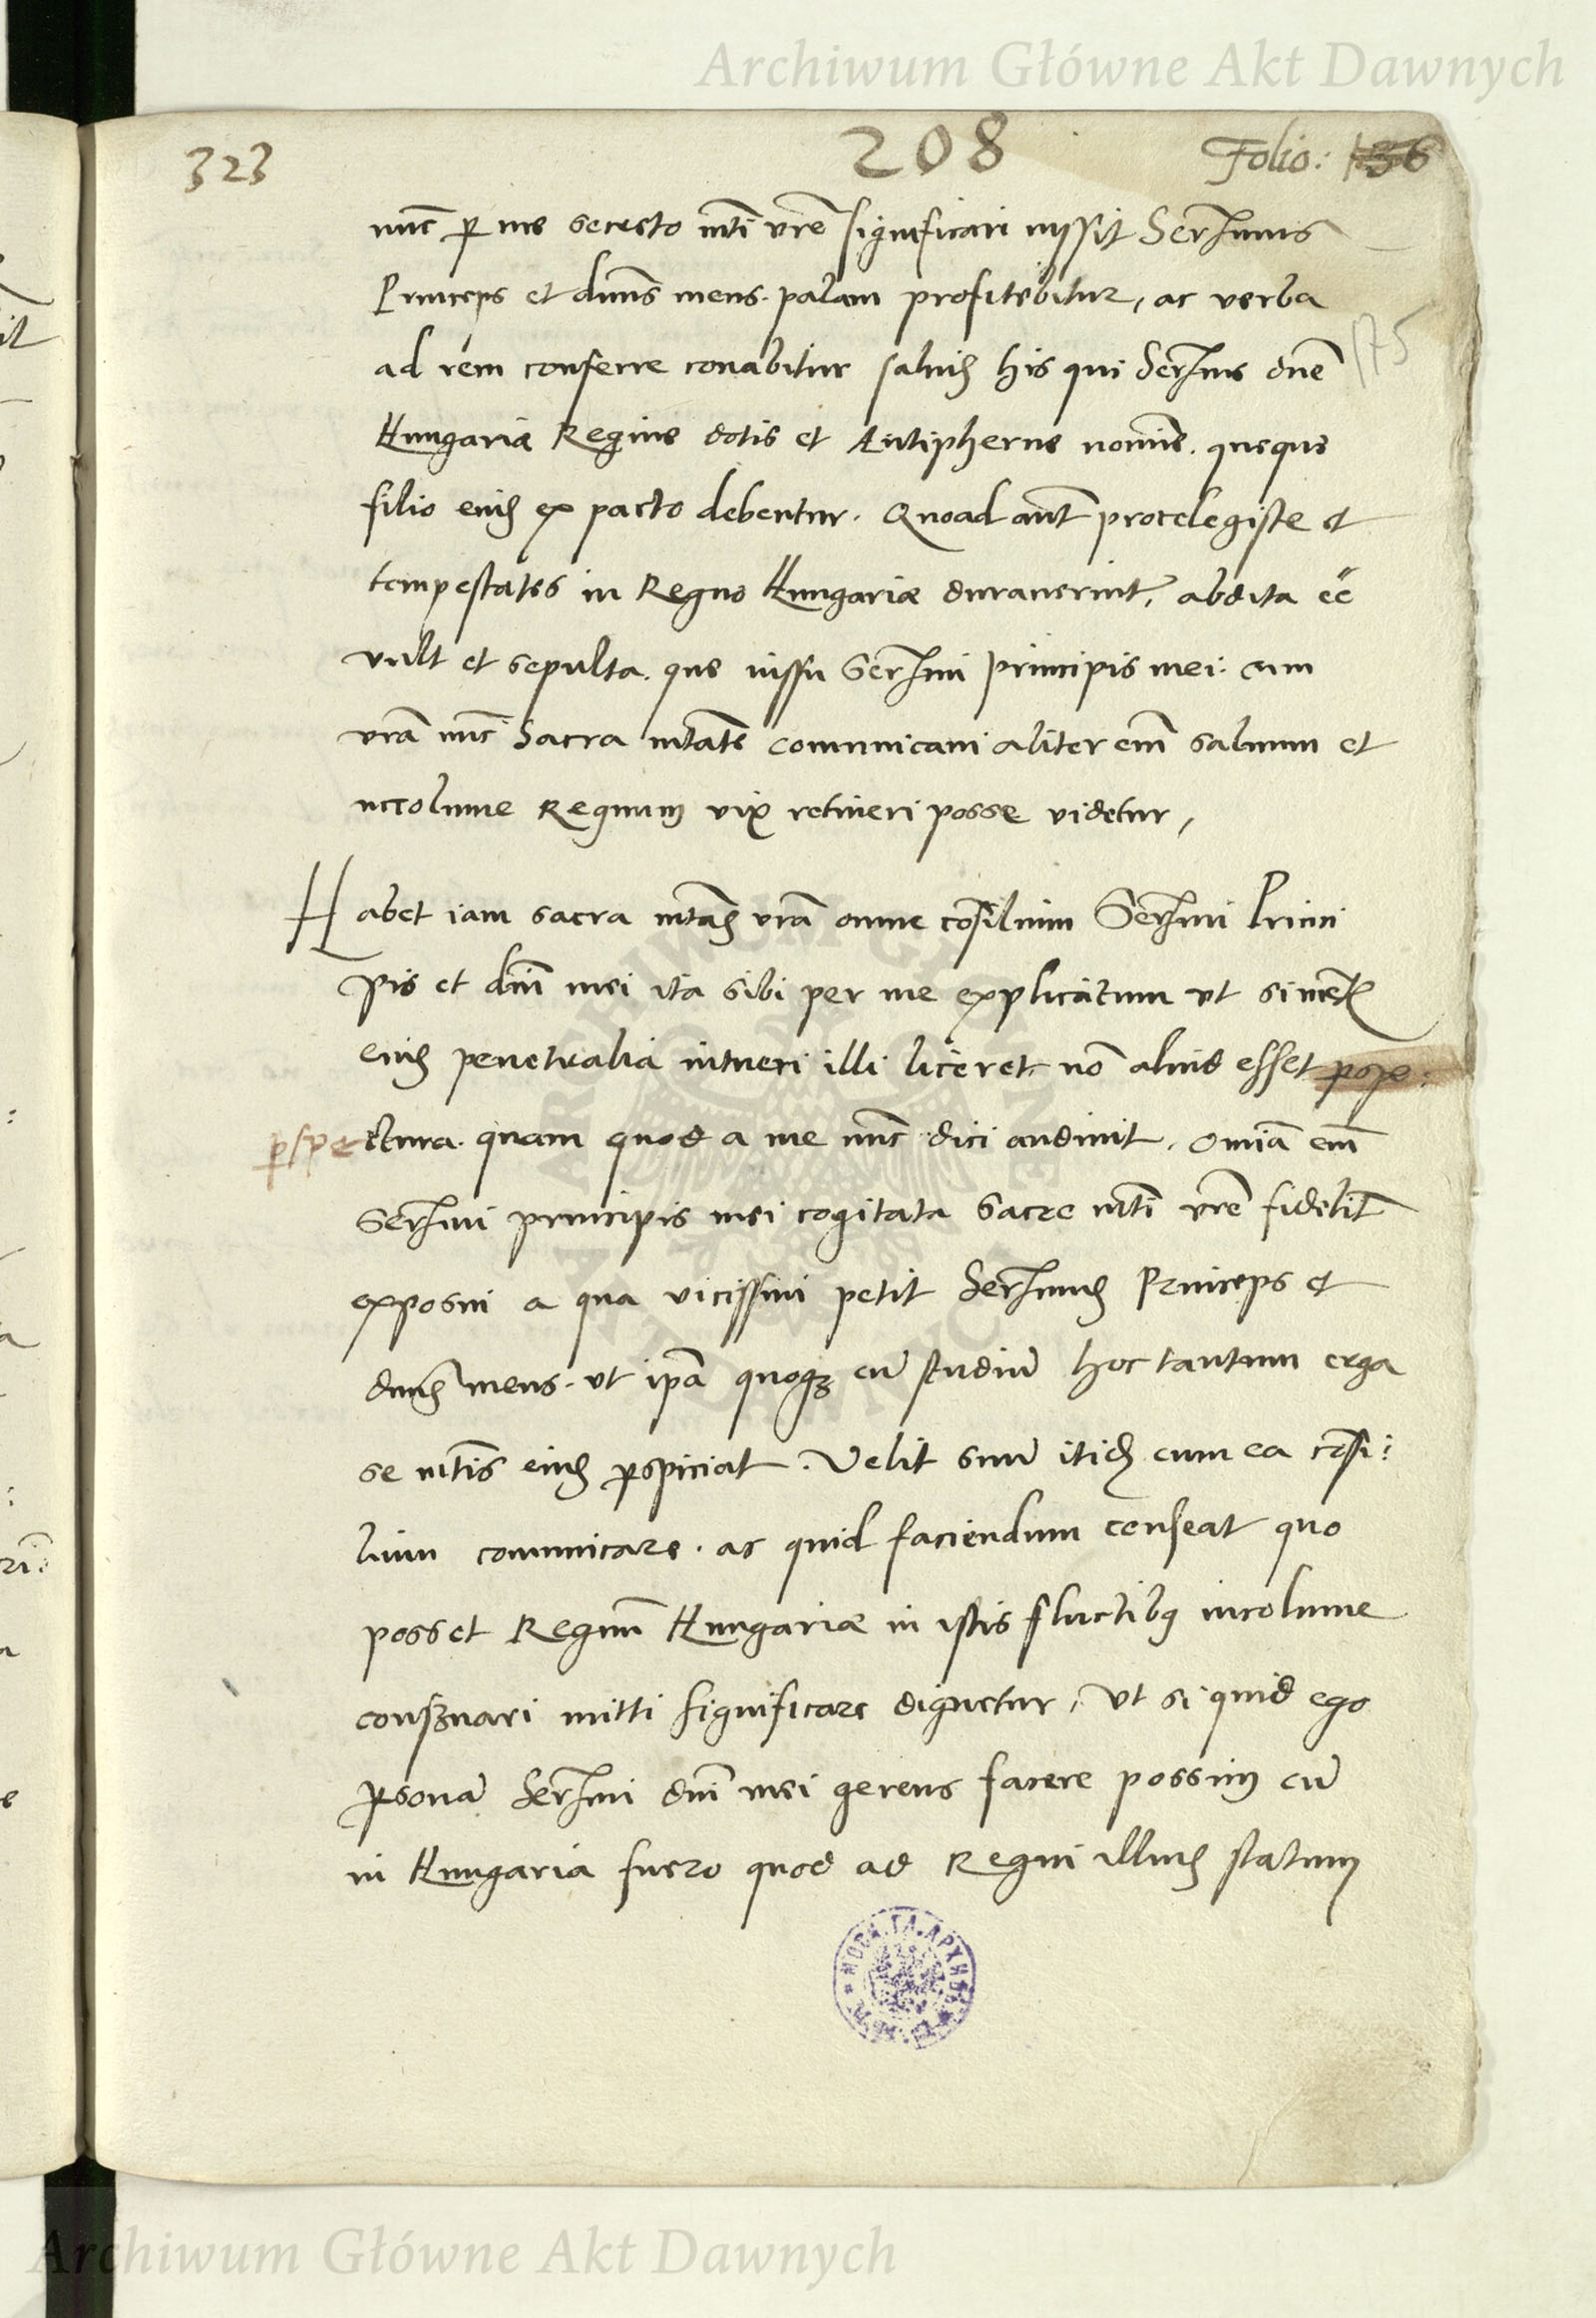 Archiwum Główne Akt Dawnych
323
208
Folio: 136
175
nūc p me secreto mti vrē significari iussit Sermus
Princeps et dnus meus. palam profitebitur, ac verba
ad rem conferre conabitur saluis his qui Sermę dnē
Hungariæ Regine dotis et Antipherne nomine. queque
filio eius ex pacto debentur. Quoad aut procelle iste et
tempestates in Regno Hungariæ durauerint, abdita eē
vult et sepulta. que iussu Sermi principis mei. cum
vrā nūc Sacra mtate comunicaui aliter em saluum et
incolume Regnum vix retineri posse videtur,
Habet iam sacra mtas vrā omne cosilium Sermi Princi
pis et dni mei ita sibi per me explicatum vt si mētis
eius penetralia intueri illi liceret. nō aliud esset pspe:
pspectura. quam quod a me nūc dici audiuit. omīa em
Sermi principis mei cogitata Sacre mti vrē fidelit
exposui a qua vicissim petit Sermus Princeps et
dnus meus. vt ipā quoqz cū studiū hoc tantum erga
se mtis eius pspiciat. Velit suū itidē cum ea cosi:
lium comunicare. ac quid faciendum censeat quo
posset Regnū Hungariæ in istis fluctibus incolume
conseruari mitti significare dignetur, Vt si quid ego
psonā Sermi dni mei gerens facere possim cū
in Hungaria fuero quod ad Regni illius statum
Archiwum Główne Akt Dawnych